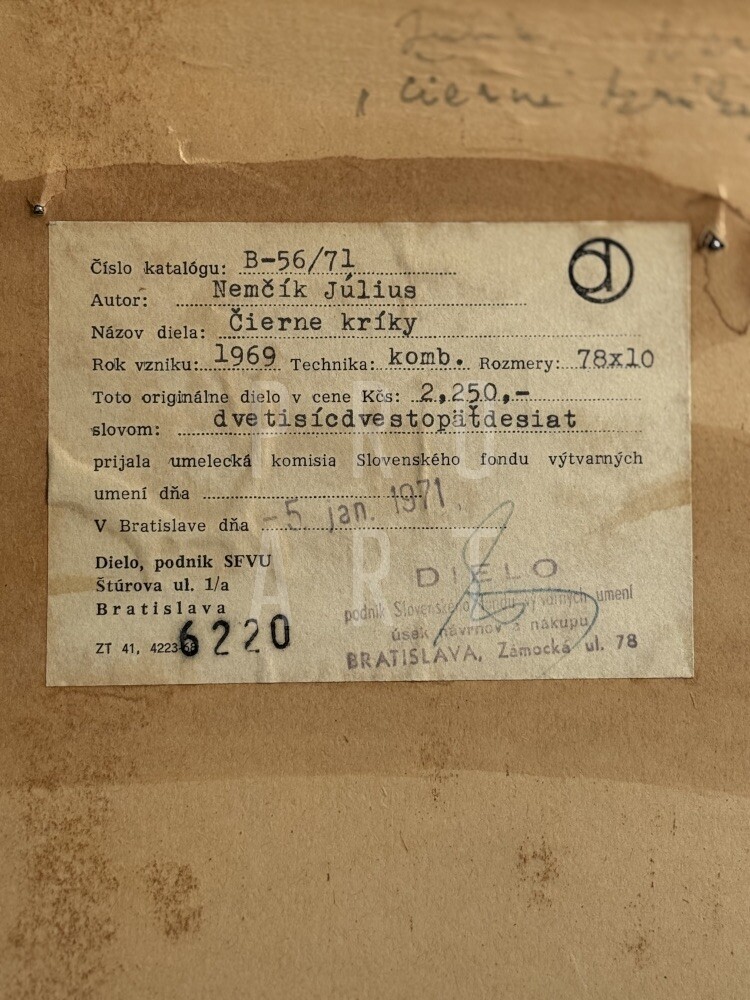 čierne
Číslo katalógu: B-56/71
Autor: Nemčík Július
Názov diela: Čierne kríky
Rok vzniku: 1969 Technika: komb. Rozmery: 78x10
Toto originálne dielo v cene Kčs: 2,250,-
slovom: dvetisícdvestopäťdesiat
prijala umelecká komisia Slovenského fondu výtvarných
umení dňa
V Bratislave dňa -5. jan. 1971
Dielo, podnik SFVU
Štúrova ul. 1/a
Bratislava
ZT 41, 4223
6220
DIELO
podnik Slovenského fondu výtvarných umení
úsek návrhov a nákupu
BRATISLAVA, Zámocká ul. 78
PRO
ART